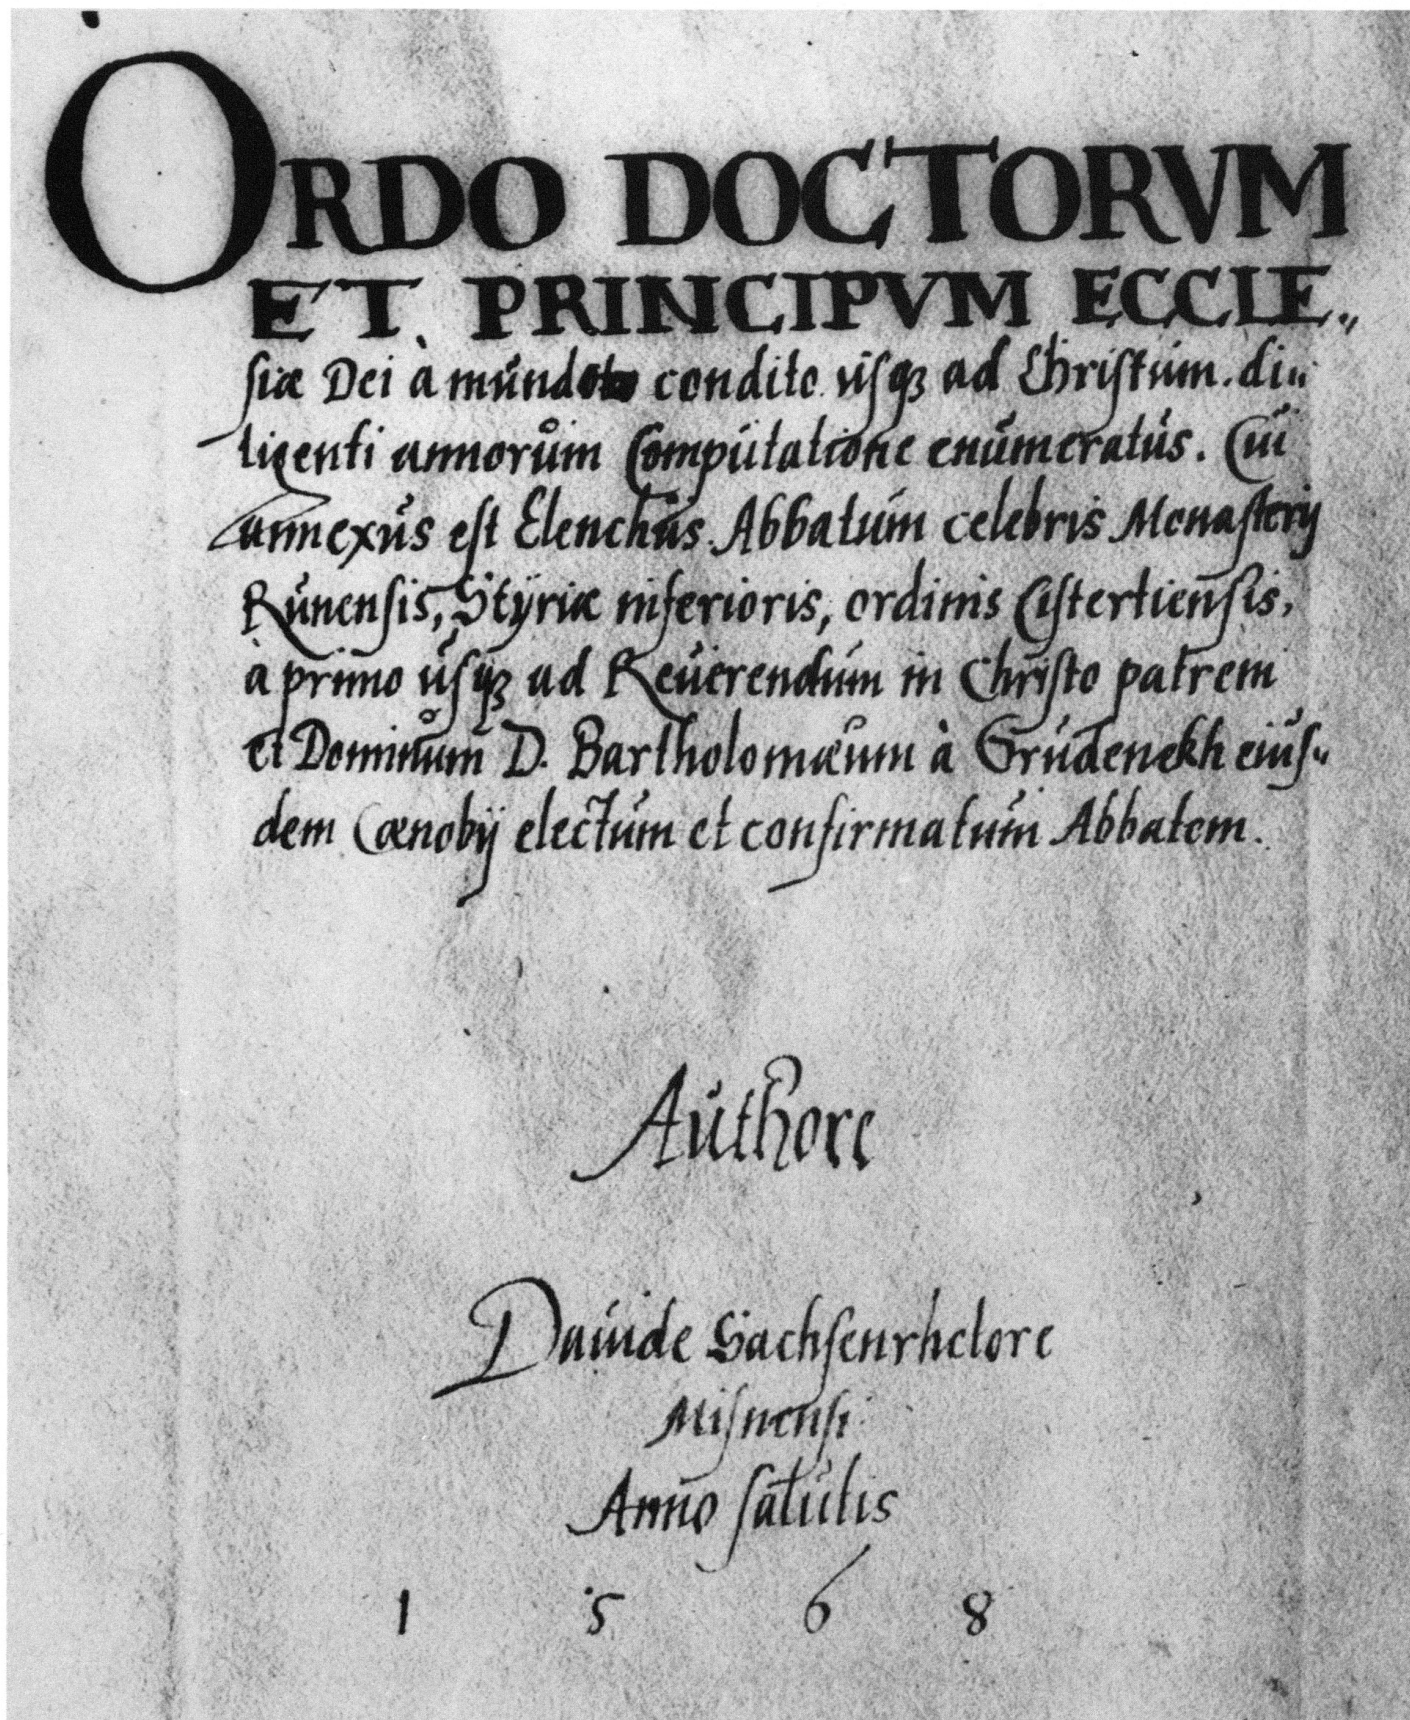 ORDO DOCTORVM
ET PRINCIPVM ECCLE„
siæ Dei à mundo condito usq₃ ad Christum. di„
ligenti annorům Computatione enumeratus. Cui
annexus est Elenchus Abbatum celebris Monasterij
Runensis, Styriæ inferioris, ordinis Cistertiensis,
à primo usq₃ ad Reuerendum in Christo patrem
et Dominum D. Bartholomæum à Grudenekh eius„
dem Cœnobij electum et confirmatum Abbatem.
Authore
Dauide Sachsenrhetore
Misnensi
Anno salutis
1 5 6 8